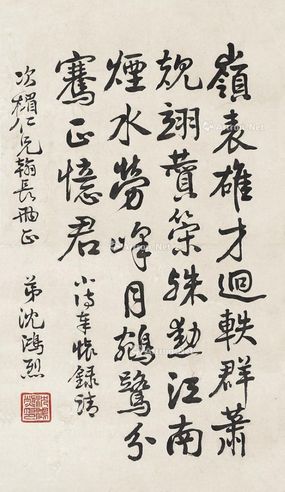 嶺表雄才迥軼群蕭
規翊贊策殊勛江南
煙水勞峰月鵷鷺分
騫正憶君
小詩奉懷錄請
次楣仁兄翰長正
弟沈鴻烈